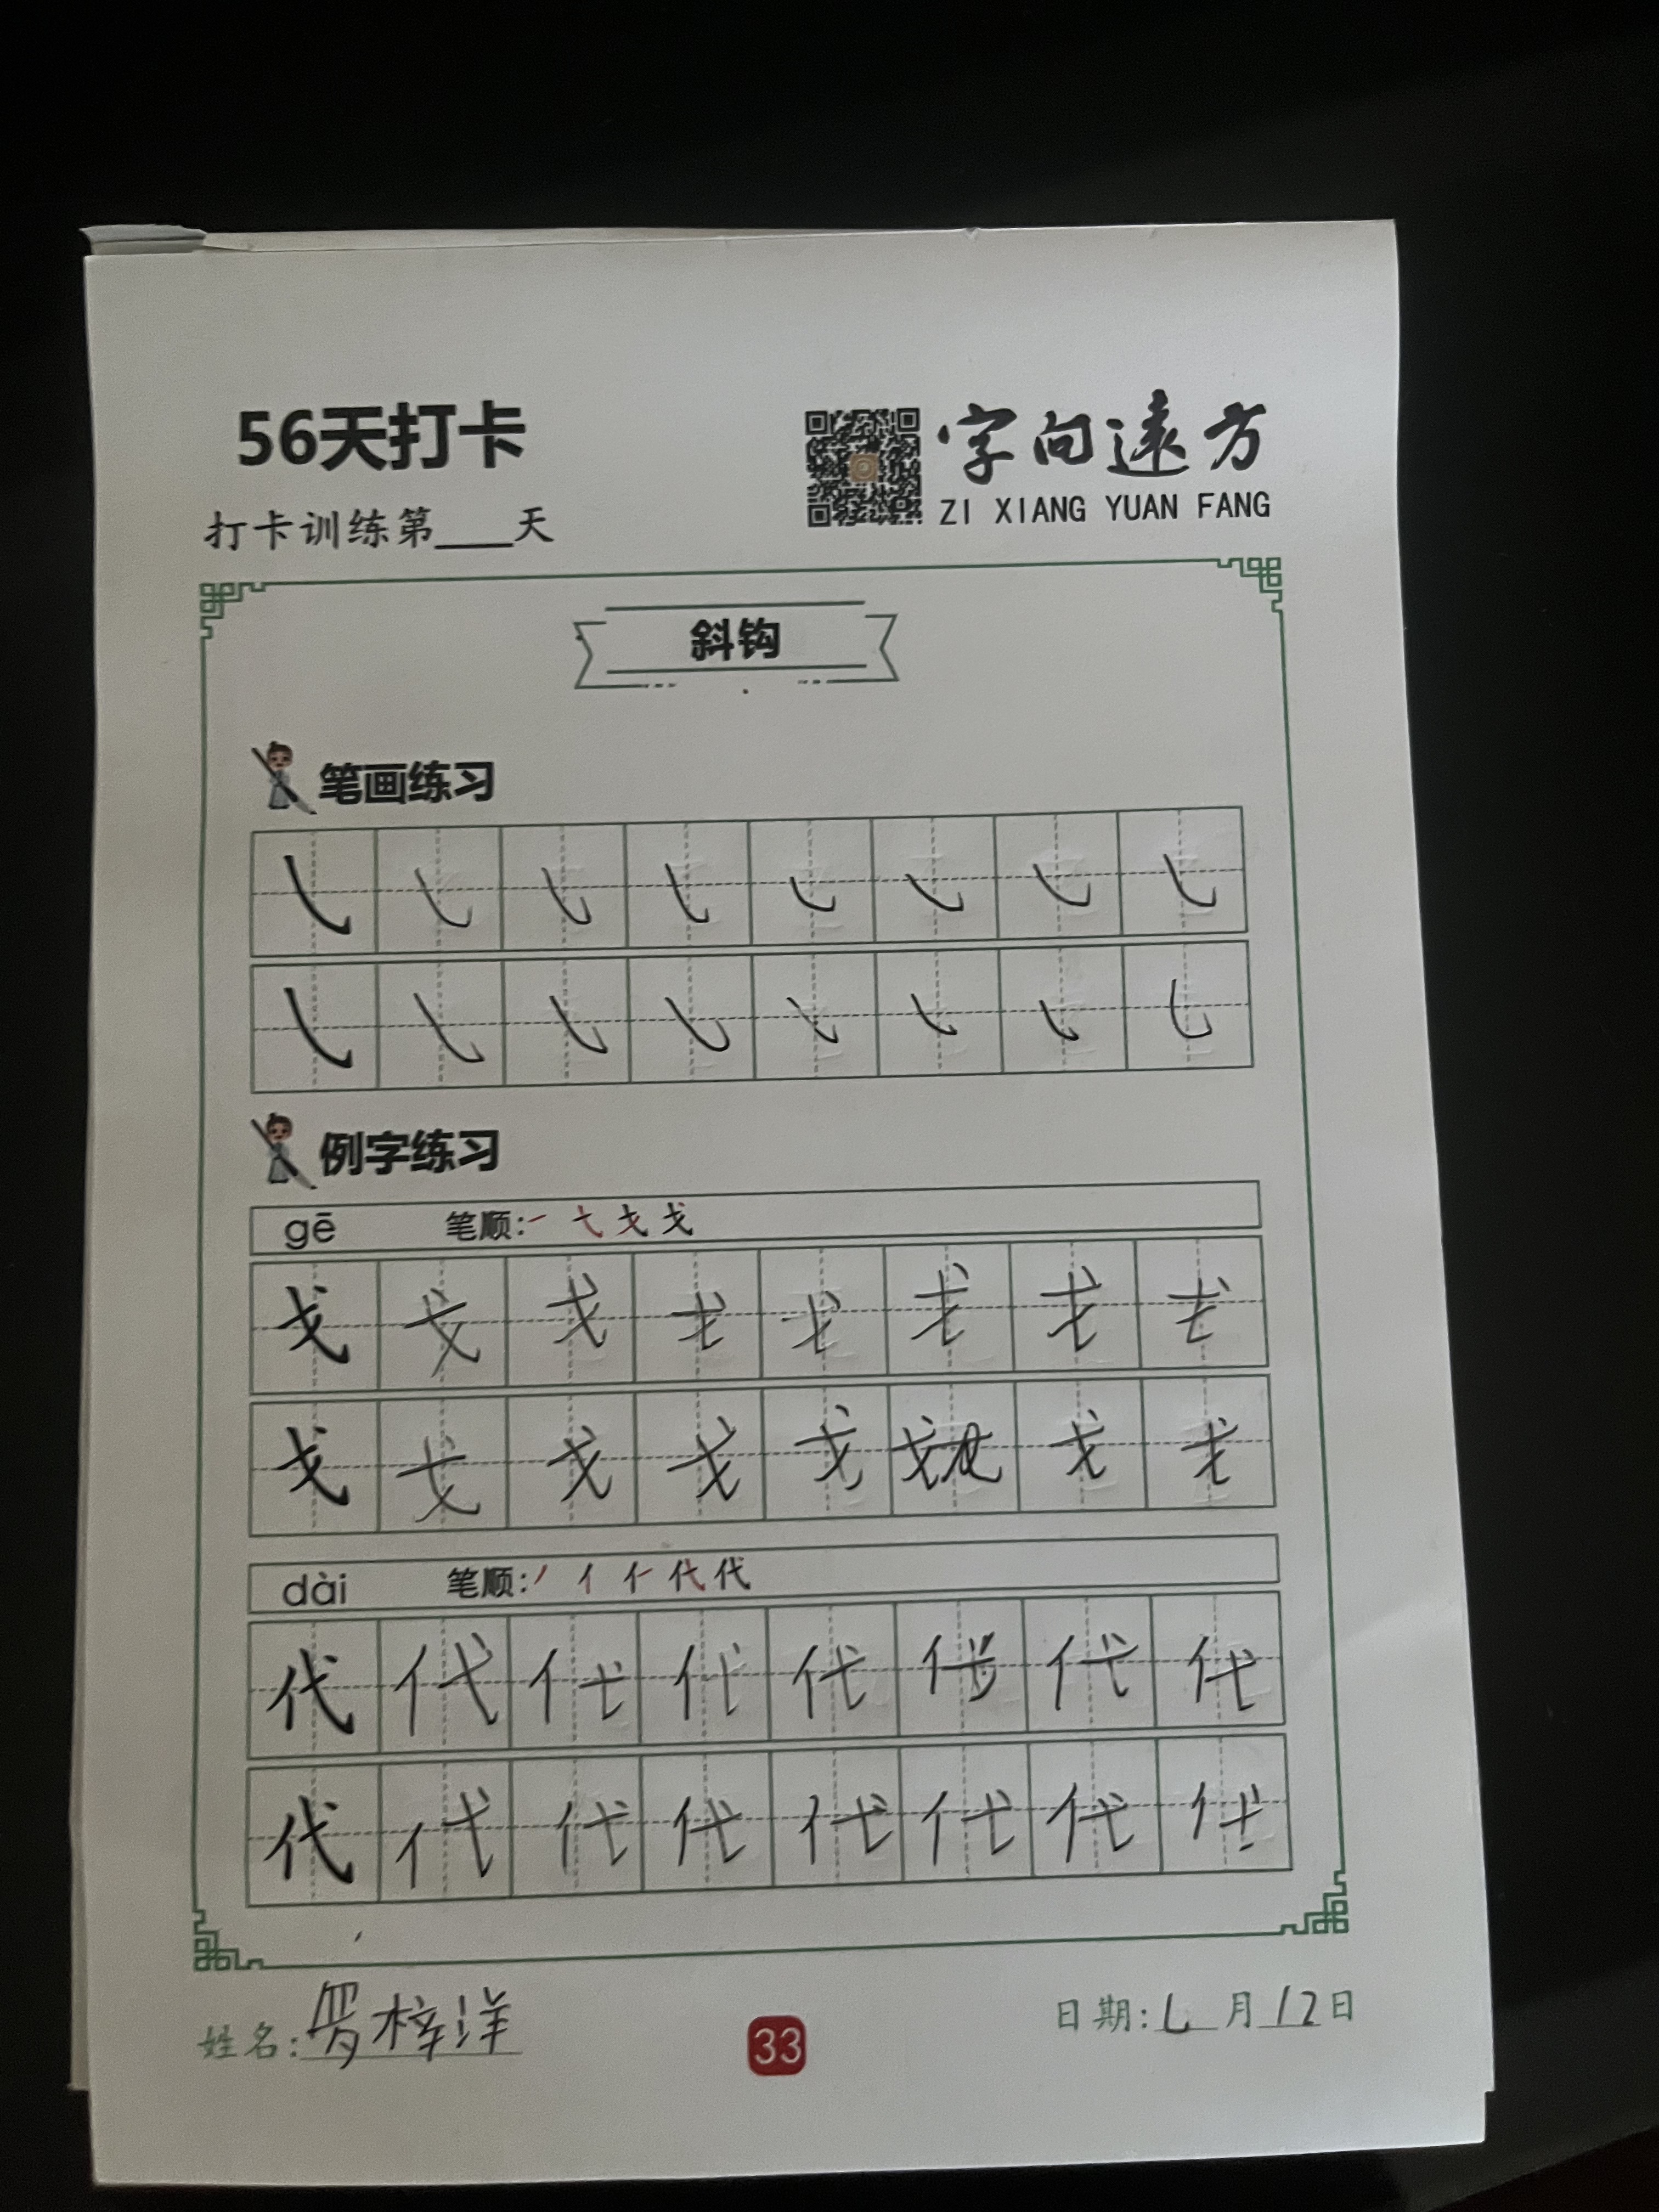 56天打卡
字向遠方
打卡训练第____天
ZI XIANG YUAN FANG
斜钩
笔画练习
㇂ ㇂ ㇂ ㇂ ㇂ ㇂ ㇂ ㇂
㇂ ㇂ ㇂ ㇂ ㇂ ㇂ ㇂ ㇂
例字练习
gē 笔顺: 一 弋 戈 戈
戈 戈 戈 戈 戈 戈 戈 戈
戈 戈 戈 戈 戈 戈 戈 戈
dài 笔顺: 丿 亻 仁 代 代
代 代 代 代 代 代 代 代
代 代 代 代 代 代 代 代
姓名: 罗梓洋
33
日期: 月 12 日